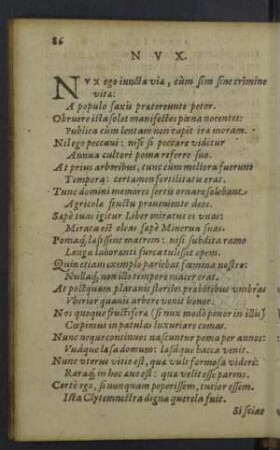 86
NVX.
NVX ego iuncta viæ, cùm sim sine crimine
vitæ:
A populo saxis prætereunte petor.
Obruere ista solet manifestos pœna nocentes:
Publica cùm lentam non capit ira moram.
Nil ego peccaui: nisi si peccare videtur
Annua cultori poma referre suo.
At prius arboribus, tunc cùm meliora fuerunt
Tempora: certamen fertilitatis erat.
Tunc domini memores sertis ornare solebant
Agricolæ fructu proueniente deos.
Sæpè tuas igitur Liber miratus es vuas:
Mirata est oleas sæpè Minerua suas.
Pomaq́; læsissent matrem: nisi subdita ramo
Longa laboranti furca tulisset opem.
Quin etiam exemplo pariebat fœmina nostro:
Nullaq́; non illo tempore mater erat.
At postquam platanis sterilem præbentibus vmbram
Vberior quauis arbore venit honor:
Nos quoque fructiferæ (si nux modò ponor in illis)
Cœpimus in patulas luxuriare comas.
Nunc neque continuos nascuntur poma per annos:
Vuáque læsa domum: læsáque bacca venit.
Nunc vterum vitiat, quæ vult formosa videri:
Raraq́; in hoc æuo est: quæ velit esse parens.
Certè ego, si nunquam peperissem, tutior essem.
Ista Clytemnestra digna querela fuit.
Si sciat